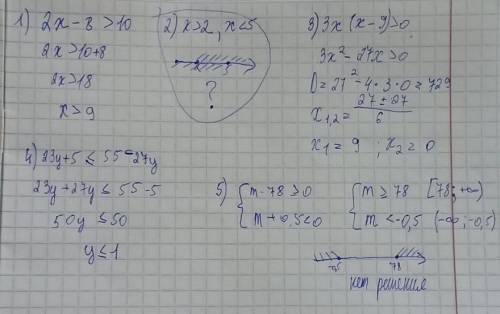 1) 2x - 8 > 10
2x > 10+8
2x > 18
x > 9
2) x>2, x<5
2 5
?
3) 3x (x - 9) > 0
3x² - 27x > 0
D = 27² - 4·3·0 = 729
x₁,₂ = 27 ± 27 / 6
x₁ = 9 ; x₂ = 0
4) 23y + 5 ≤ 55 - 27y
23y + 27y ≤ 55 - 5
50y ≤ 50
y ≤ 1
5) { m - 78 ≥ 0 { m ≥ 78 [78; +∞)
m + 0,5 < 0 m < -0,5 (-∞; -0,5)
-0,5 78
нет решения